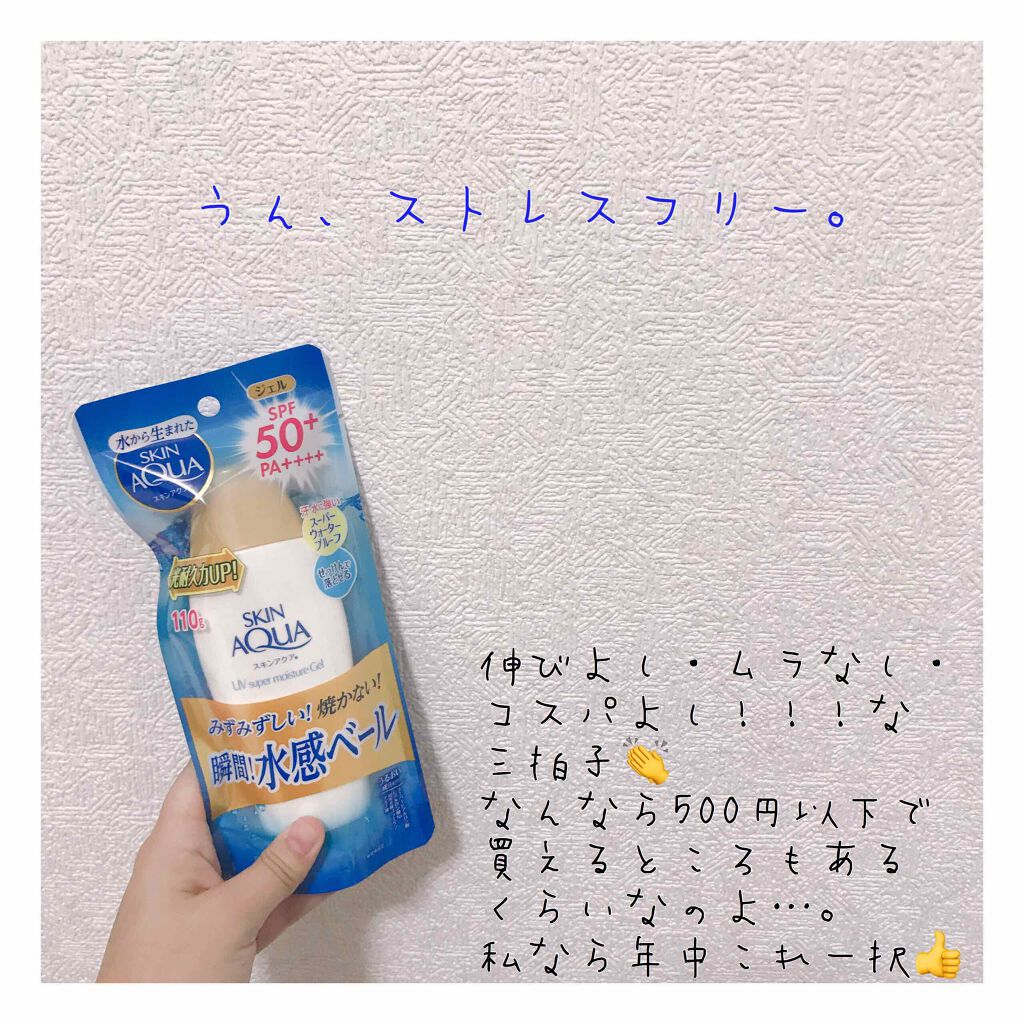 うん、ストレスフリー。
ジェル
水から生まれた
SKIN
AQUA
スキンアクア
SPF
50+
PA++++
汗・水に強い
スーパー
ウォーター
プルーフ
せっけんで
落とせる
光耐久力UP!
110g
SKIN
AQUA
スキンアクア®
UV super moisture Gel
みずみずしい!焼かない!
瞬間!水感ベール
うるおい
伸びよし・ムラなし・
コスパよし!!!な
三拍子👏
なんなら500円以下で
買えるところもある
くらいなのよ…。
私なら年中これ一択👍